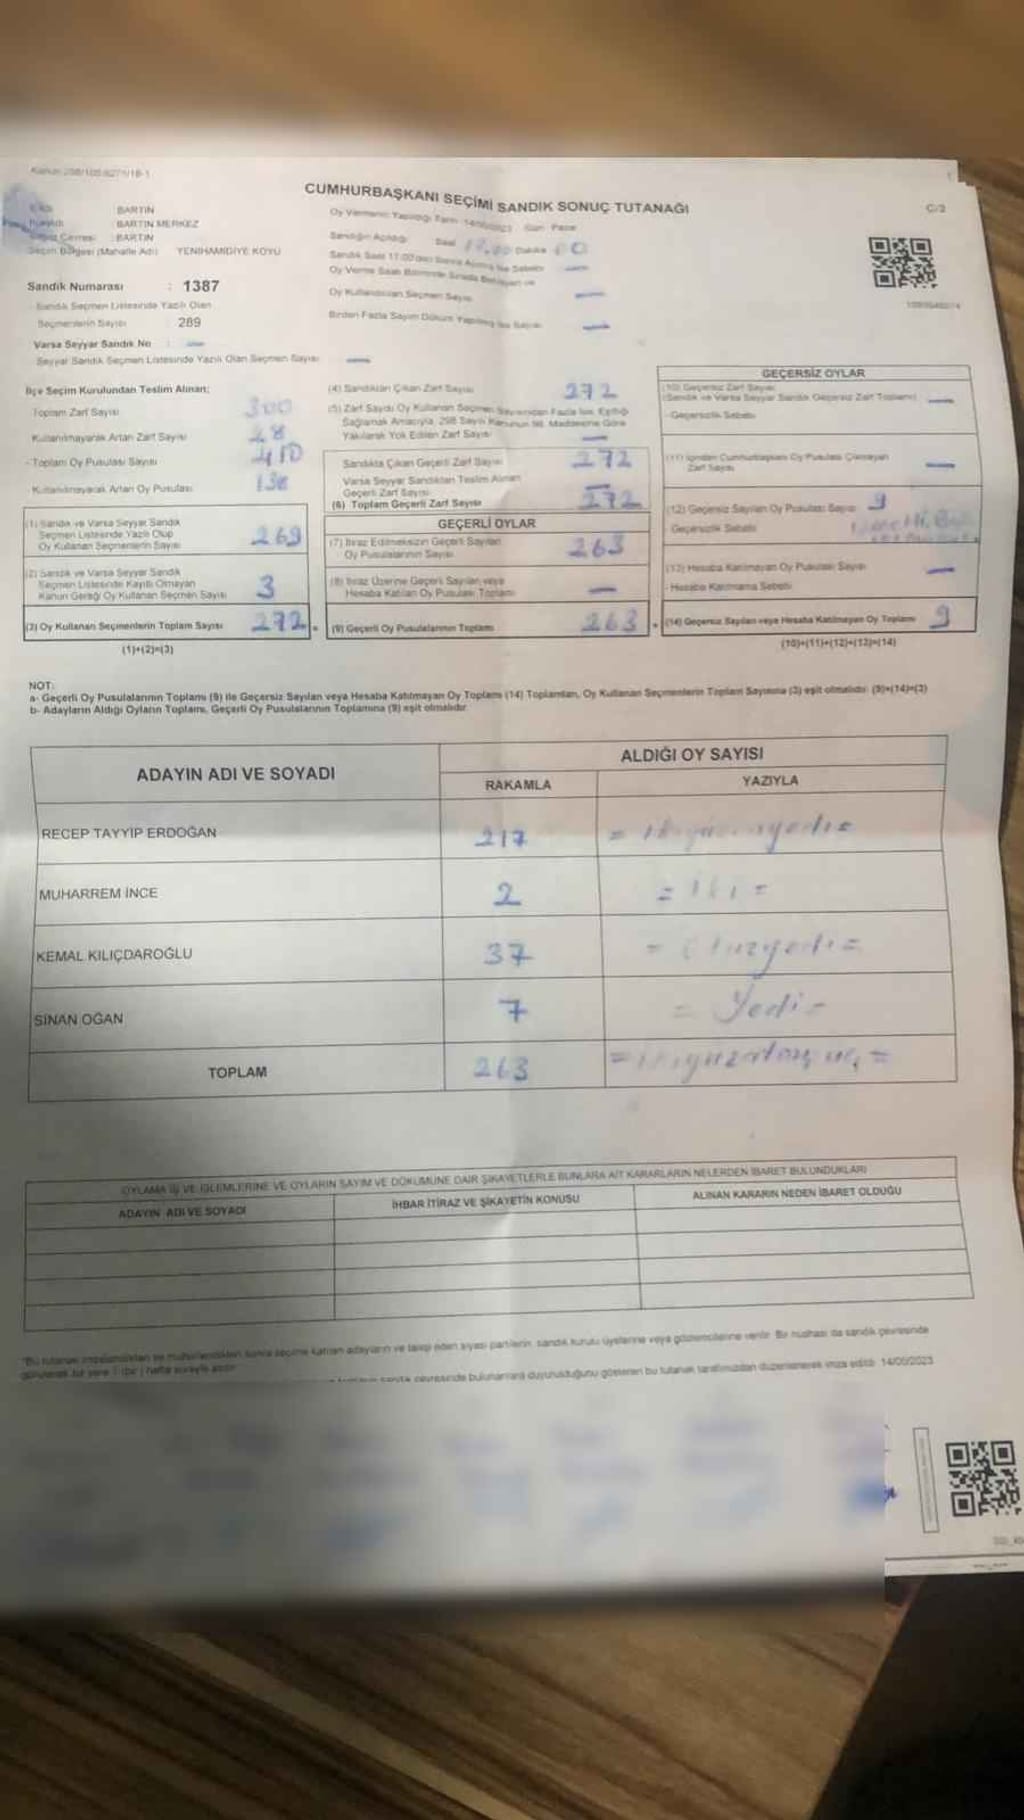 CUMHURBAŞKANI SEÇİMİ SANDIK SONUÇ TUTANAĞI
C/2
İli : BARTIN
: BARTIN MERKEZ
Seçim Çevresi : BARTIN
Seçim Bölgesi (Mahalle Adı) YENİHAMİDİYE KÖYÜ
Sandık Numarası : 1387
Sandık Seçmen Listesinde Yazılı Olan
Seçmenlerin Sayısı 289
Varsa Seyyar Sandık No : —
Seyyar Sandık Seçmen Listesinde Yazılı Olan Seçmen Sayısı —
Oy Vermenin Yapıldığı Tarih: 14/05/2023 Gün: Pazar
Sandığın Açıldığı Saat 17.00 Dakika 00
Oy Kullandırılan Seçmen Sayısı —
Birden Fazla Sayım Döküm Yapılmış İse Sayısı —
İlçe Seçim Kurulundan Teslim Alınan:
Toplam Zarf Sayısı 300
Kullanılmayarak Artan Zarf Sayısı 28
- Toplam Oy Pusulası Sayısı 410
- Kullanılmayarak Artan Oy Pusulası 138
(1) Sandık ve Varsa Seyyar Sandık
Seçmen Listesinde Yazılı Olup
Oy Kullanan Seçmenlerin Sayısı 269
(2) Sandık ve Varsa Seyyar Sandık
Seçmen Listesinde Kayıtlı Olmayan
Kanun Gereği Oy Kullanan Seçmen Sayısı 3
(3) Oy Kullanan Seçmenlerin Toplam Sayısı 272
(1)+(2)=(3)
(4) Sandıktan Çıkan Zarf Sayısı 272
(5) Zarf Sayısı Oy Kullanan Seçmen Sayısından Fazla İse, Eşitliği
Sağlamak Amacıyla, 298 Sayılı Kanunun 98. Maddesine Göre
Yakılarak Yok Edilen Zarf Sayısı —
Sandıkta Çıkan Geçerli Zarf Sayısı 272
Varsa Seyyar Sandıktan Teslim Alınan
Geçerli Zarf Sayısı —
(6) Toplam Geçerli Zarf Sayısı 272
GEÇERLİ OYLAR
(7) İtiraz Edilmeksizin Geçerli Sayılan
Oy Pusulalarının Sayısı 263
(8) İtiraz Üzerine Geçerli Sayılan veya
Hesaba Katılan Oy Pusulası Toplamı —
(9) Geçerli Oy Pusulalarının Toplamı 263
GEÇERSİZ OYLAR
(10) Geçersiz Zarf Sayısı
(Sandık ve Varsa Seyyar Sandık Geçersiz Zarf Toplamı) —
-Geçersizlik Sebebi
(11) İçinden Cumhurbaşkanı Oy Pusulası Çıkmayan
Zarf Sayısı —
(12) Geçersiz Sayılan Oy Pusulası Sayısı 9
Geçersizlik Sebebi
(13) Hesaba Katılmayan Oy Pusulası Sayısı —
- Hesaba Katılmama Sebebi
(14) Geçersiz Sayılan veya Hesaba Katılmayan Oy Toplamı 9
(10)+(11)+(12)+(13)=(14)
NOT:
a- Geçerli Oy Pusulalarının Toplamı (9) ile Geçersiz Sayılan veya Hesaba Katılmayan Oy Toplamı (14) Toplamları, Oy Kullanan Seçmenlerin Toplam Sayısına (3) eşit olmalıdır. (9)+(14)=(3)
b- Adayların Aldığı Oyların Toplamı, Geçerli Oy Pusulalarının Toplamına (9) eşit olmalıdır.
ADAYIN ADI VE SOYADI
ALDIĞI OY SAYISI
RAKAMLA YAZIYLA
RECEP TAYYİP ERDOĞAN 217
MUHARREM İNCE 2 = iki =
KEMAL KILIÇDAROĞLU 37 = Otuzyedi =
SİNAN OĞAN 7 = Yedi =
TOPLAM 263 = ikiyüzaltmışüç =
OYLAMA İŞ VE İŞLEMLERİNE VE OYLARIN SAYIM VE DÖKÜMÜNE DAİR ŞİKAYETLERLE BUNLARA AİT KARARLARIN NELERDEN İBARET BULUNDUKLARI
ADAYIN ADI VE SOYADI İHBAR İTİRAZ VE ŞİKAYETİN KONUSU ALINAN KARARIN NEDEN İBARET OLDUĞU